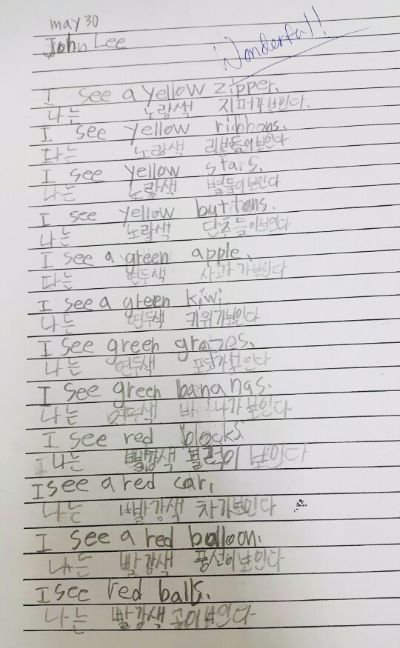 may 30
John Lee
Wonderful!
I see a yellow zipper.
나는 노랑색 지퍼가보인다.
I see yellow ribbons.
나는 노랑색 리본들이보인다
I see yellow stars.
나는 노랑색 별들이보인다
I see yellow buttons.
나는 노랑색 단추들이보인다
I see a green apple.
나는 연두색 사과가보인다
I see a green kiwi.
나는 연두색 키위가보인다
I see green grapes.
나는 연두색 포도가보인다
I see green bananas.
나는 연두색 바나나가보인다
I see red blocks
나는 빨강색 블럭이 보인다
I see a red car.
나는 빨강색 차가보인다
I see a red balloon.
나는 빨강색 풍선이보인다
I see red balls.
나는 빨강색 공이보인다